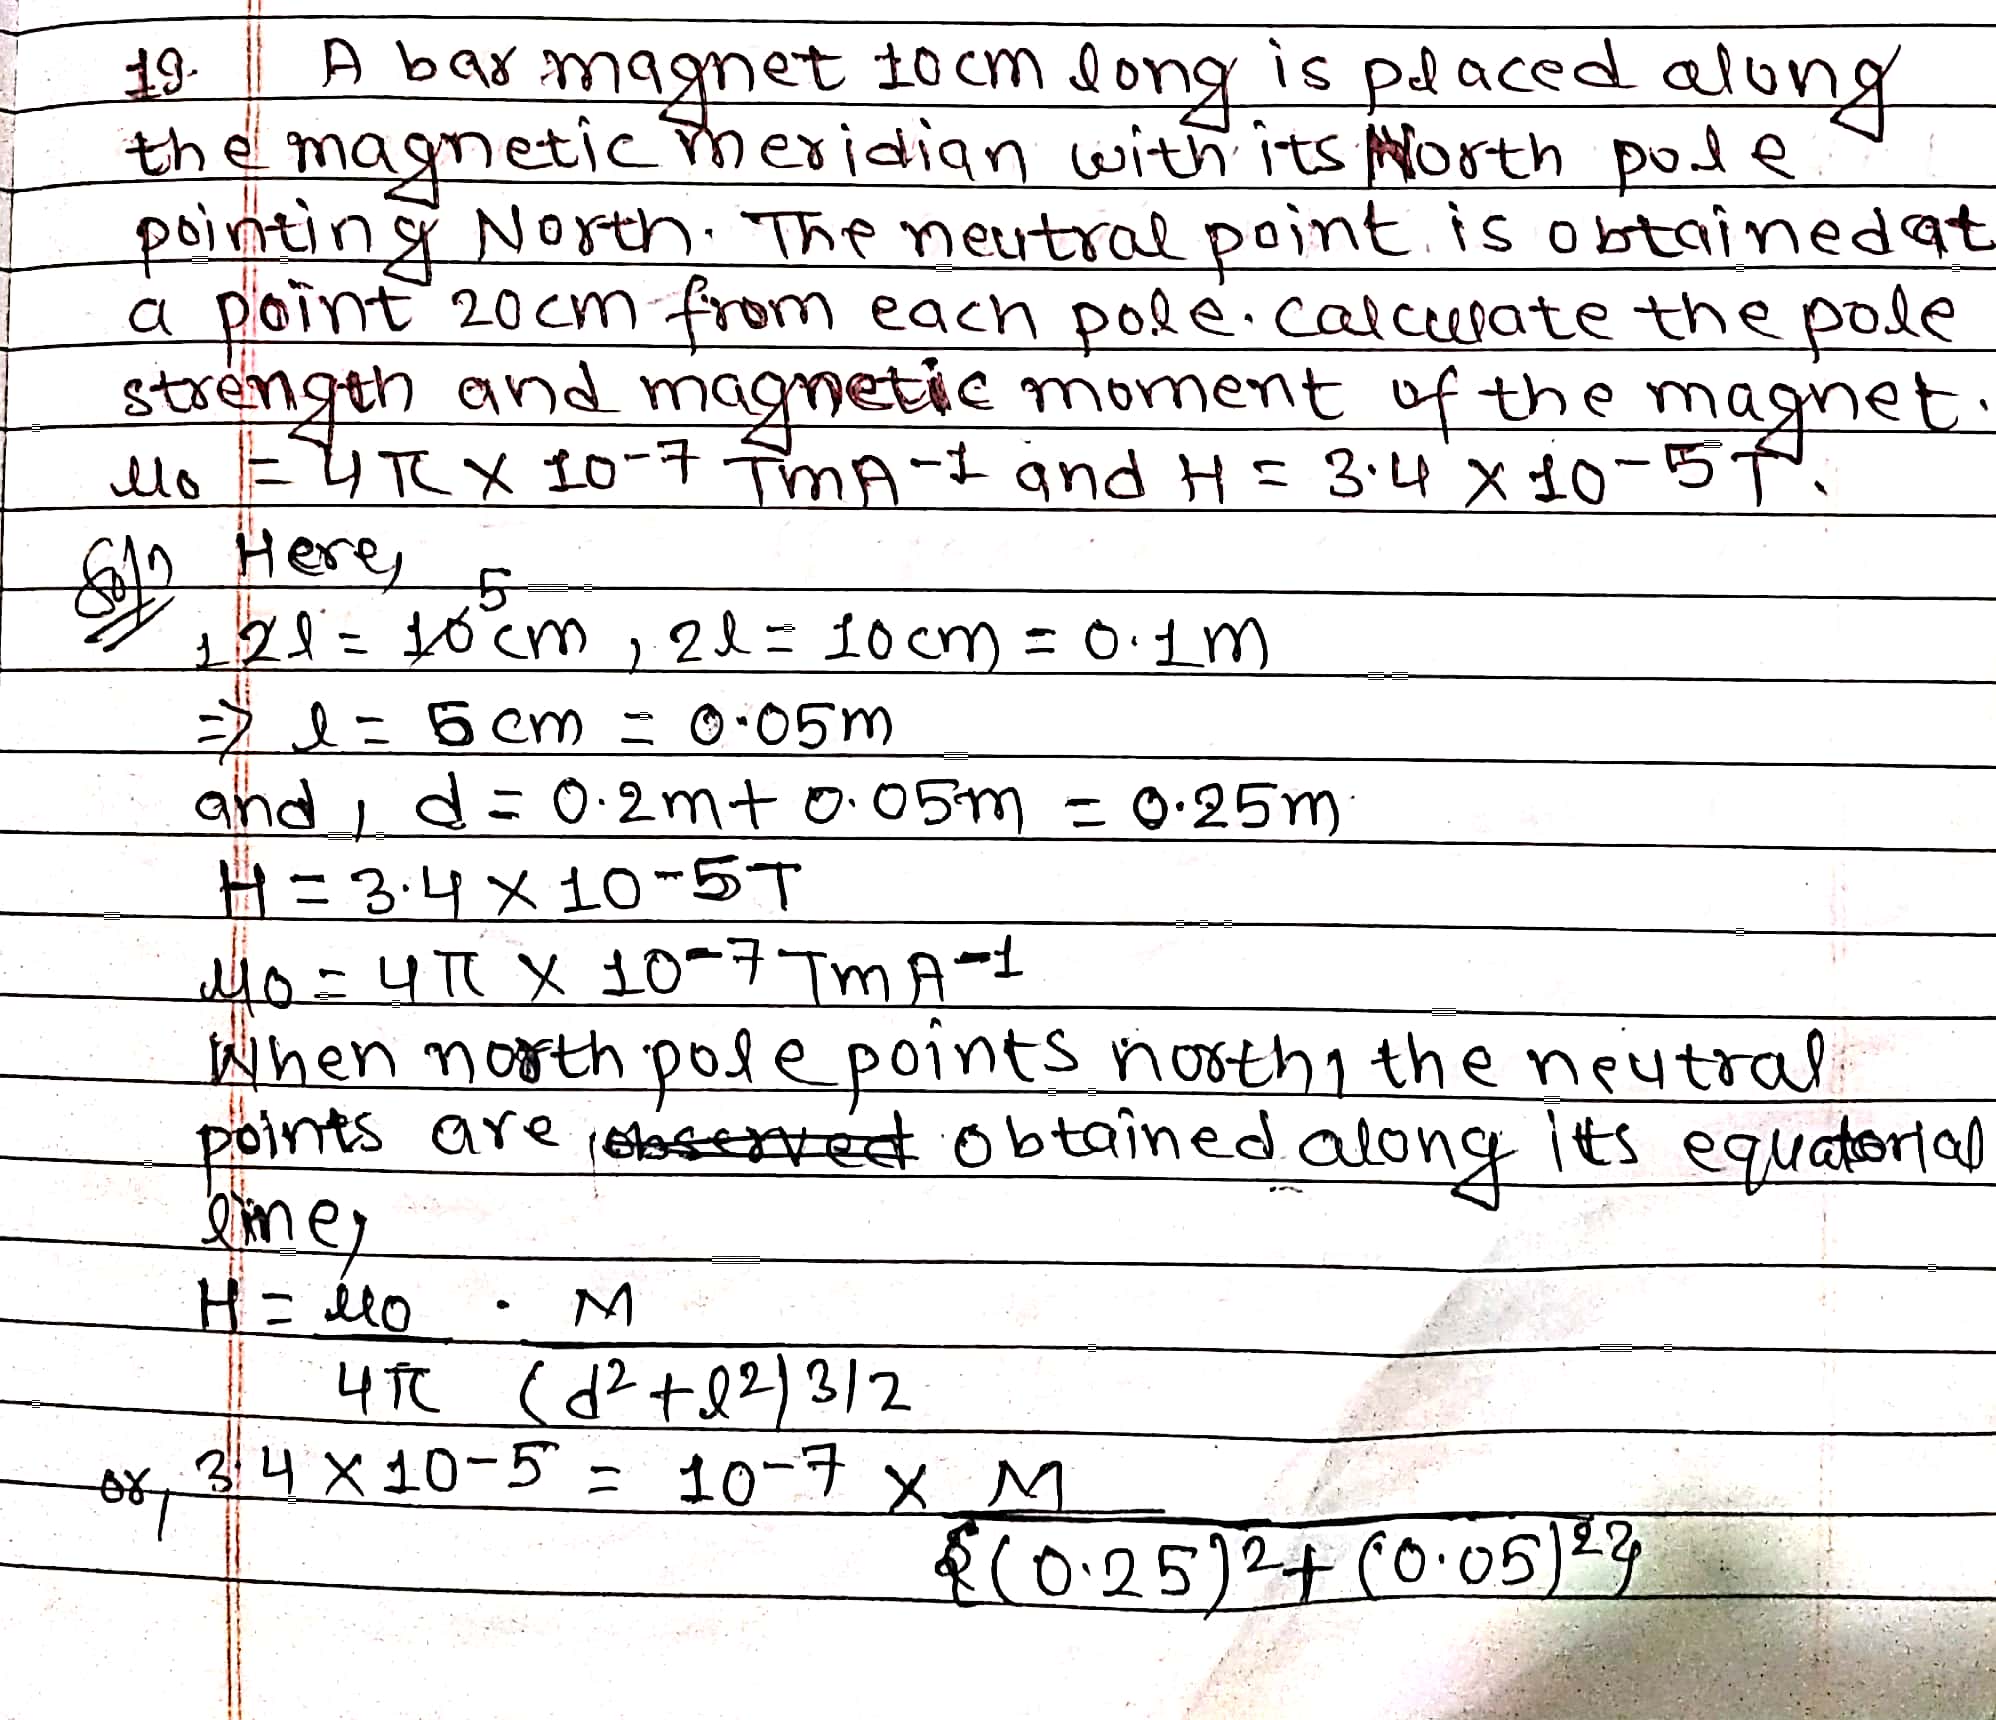 19. A bar magnet 10cm long is placed along
the magnetic meridian with its North pole
pointing North. The neutral point is obtained at
a point 20cm from each pole. calculate the pole
strength and magnetic moment of the magnet.
μ0 = 4π × 10-7 TmA-1 and H = 3.4 × 10-5T.
Soln Here,
, 2l = 10 5 cm , 2l = 10cm = 0.1m
=> l = 5cm = 0.05m
and, d = 0.2m + 0.05m = 0.25m
H = 3.4 × 10-5T
μ0 = 4π × 10-7 TmA-1
When north pole points north, the neutral
points are observed obtained along its equatorial
line,
H = μ0 . M
4π (d2+l2)3/2
or, 3.4 × 10-5 = 10-7 × M
{(0.25)2+(0.05)2}